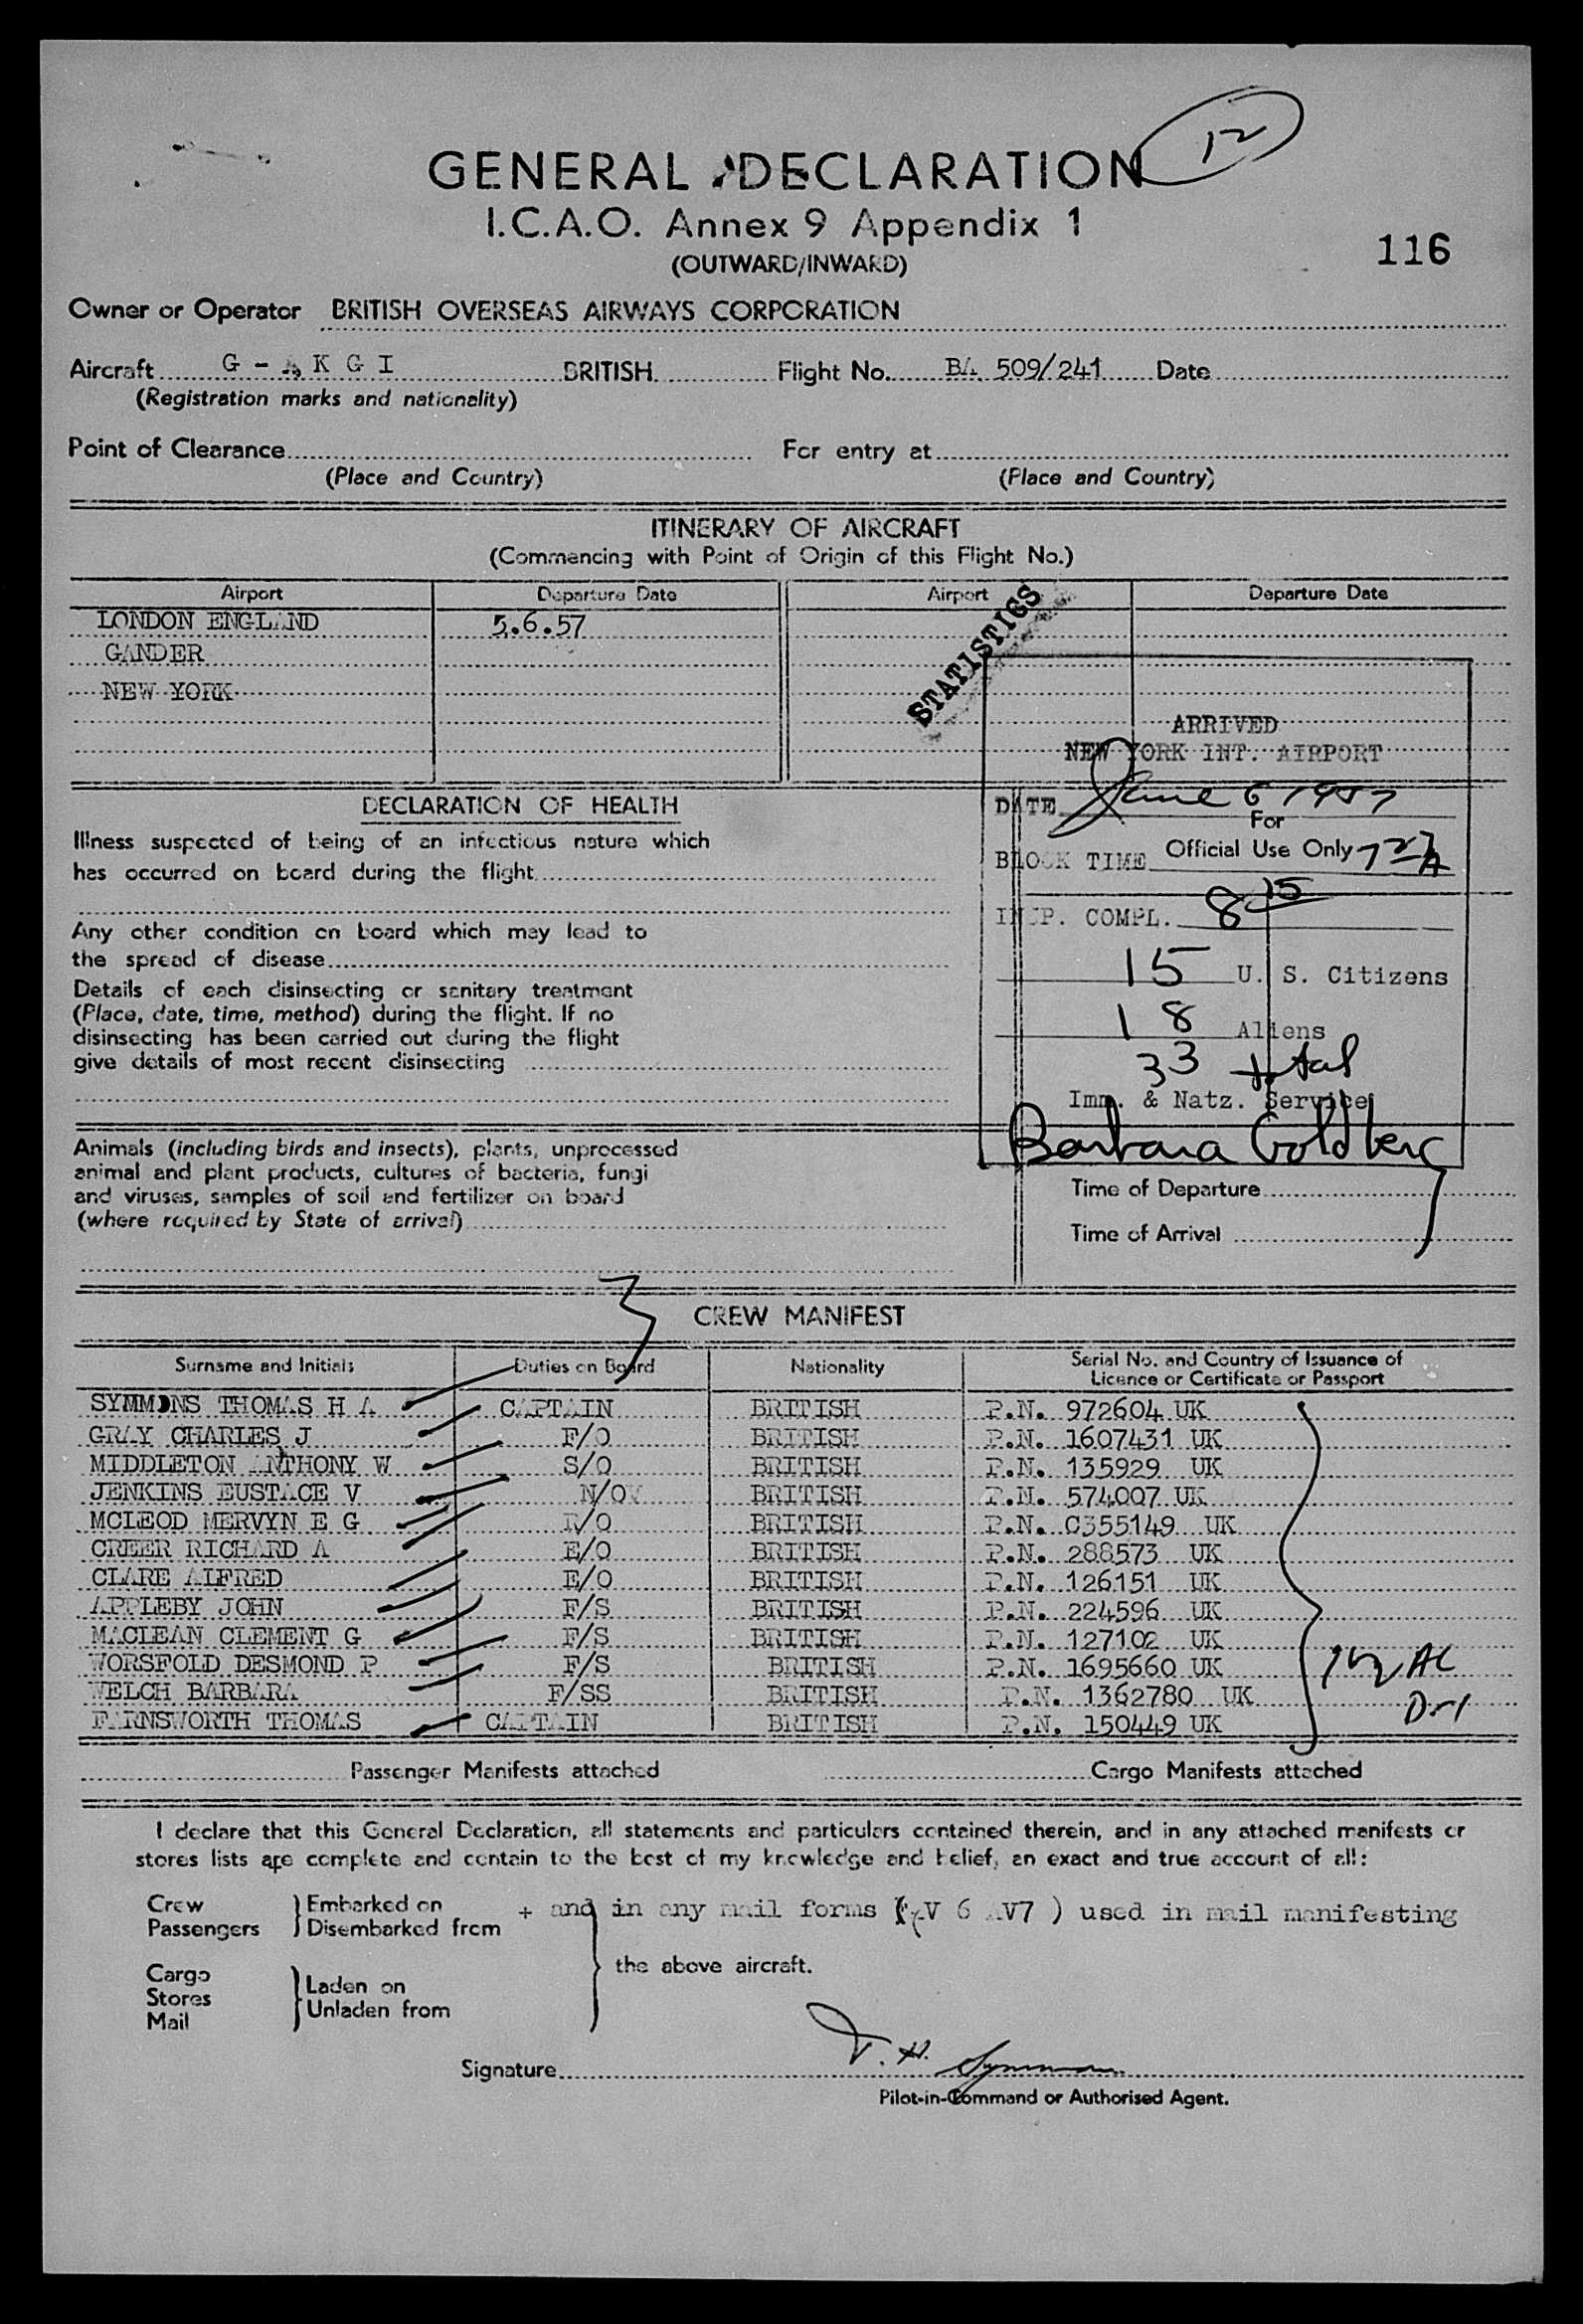 12
GENERAL DECLARATION
I.C.A.O. Annex 9 Appendix 1
(OUTWARD/INWARD)
116
Owner or Operator BRITISH OVERSEAS AIRWAYS CORPORATION
Aircraft G - A K G I BRITISH Flight No. BA 509/241 Date
(Registration marks and nationality)
Point of Clearance For entry at
(Place and Country) (Place and Country)
ITINERARY OF AIRCRAFT
(Commencing with Point of Origin of this Flight No.)
Airport Departure Date Airport Departure Date
LONDON ENGLAND 5.6.57
GANDER
NEW YORK
STATISTICS
ARRIVED
NEW YORK INT. AIRPORT
DATE June 6 1957
For
Official Use Only
BLOCK TIME
INSP. COMPL. 8 15
15 U. S. Citizens
18 Aliens
33 total
Imm. & Natz. Service
Barbara Goldberg
DECLARATION OF HEALTH
Illness suspected of being of an infectious nature which
has occurred on board during the flight
Any other condition on board which may lead to
the spread of disease
Details of each disinsecting or sanitary treatment
(Place, date, time, method) during the flight. If no
disinsecting has been carried out during the flight
give details of most recent disinsecting
Animals (including birds and insects), plants, unprocessed
animal and plant products, cultures of bacteria, fungi
and viruses, samples of soil and fertilizer on board
(where required by State of arrival)
Time of Departure
Time of Arrival
CREW MANIFEST
Surname and Initials Duties on Board Nationality Serial No. and Country of Issuance of
Licence or Certificate or Passport
SYMMONS THOMAS H A CAPTAIN BRITISH P.N. 972604 UK
GRAY CHARLES J F/O BRITISH P.N. 1607431 UK
MIDDLETON ANTHONY W S/O BRITISH P.N. 135929 UK
JENKINS EUSTACE V N/O BRITISH P.N. 574007 UK
MCLEOD MERVYN E G R/O BRITISH P.N. C355149 UK
CREER RICHARD A E/O BRITISH P.N. 288573 UK
CLARE ALFRED E/O BRITISH P.N. 126151 UK
APPLEBY JOHN F/S BRITISH P.N. 224596 UK
MACLEAN CLEMENT G F/S BRITISH P.N. 127102 UK
WORSFOLD DESMOND P F/S BRITISH P.N. 1695660 UK
WELCH BARBARA F/SS BRITISH P.N. 1362780 UK
FARNSWORTH THOMAS CAPTAIN BRITISH P.N. 150449 UK
Passenger Manifests attached Cargo Manifests attached
I declare that this General Declaration, all statements and particulars contained therein, and in any attached manifests or
stores lists are complete and contain to the best of my knowledge and belief, an exact and true account of all:
Crew Embarked on + and in any mail forms ( AV 6 AV7 ) used in mail manifesting
Passengers Disembarked from
the above aircraft.
Cargo
Stores Laden on
Mail Unladen from
Signature T. H. Symmons
Pilot-in-Command or Authorised Agent.